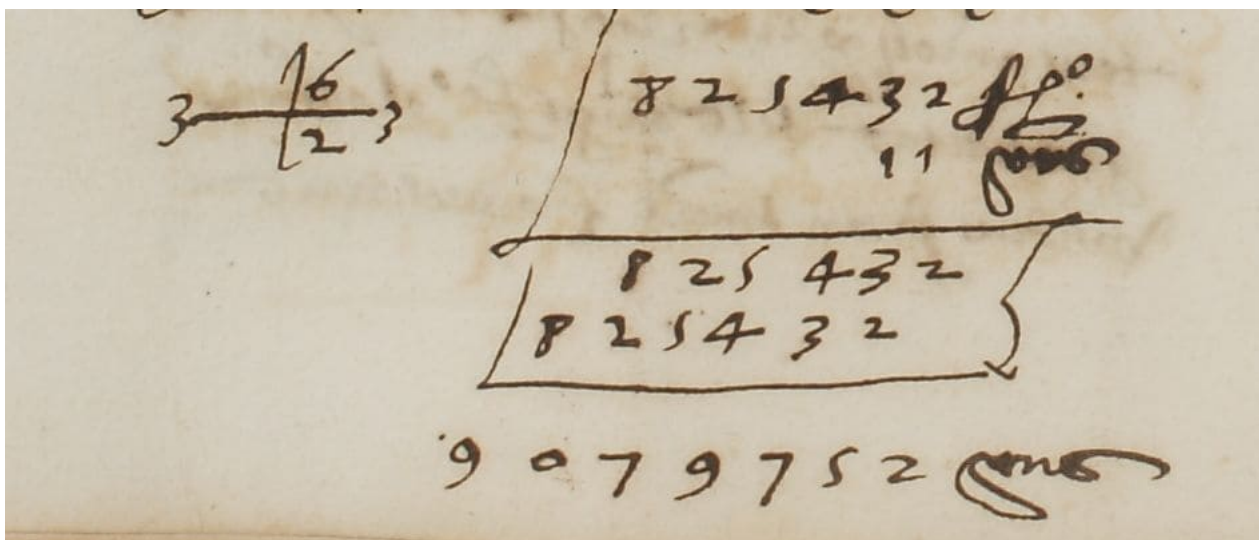 6
3 3
2
825432
11
825432
825432
9079752